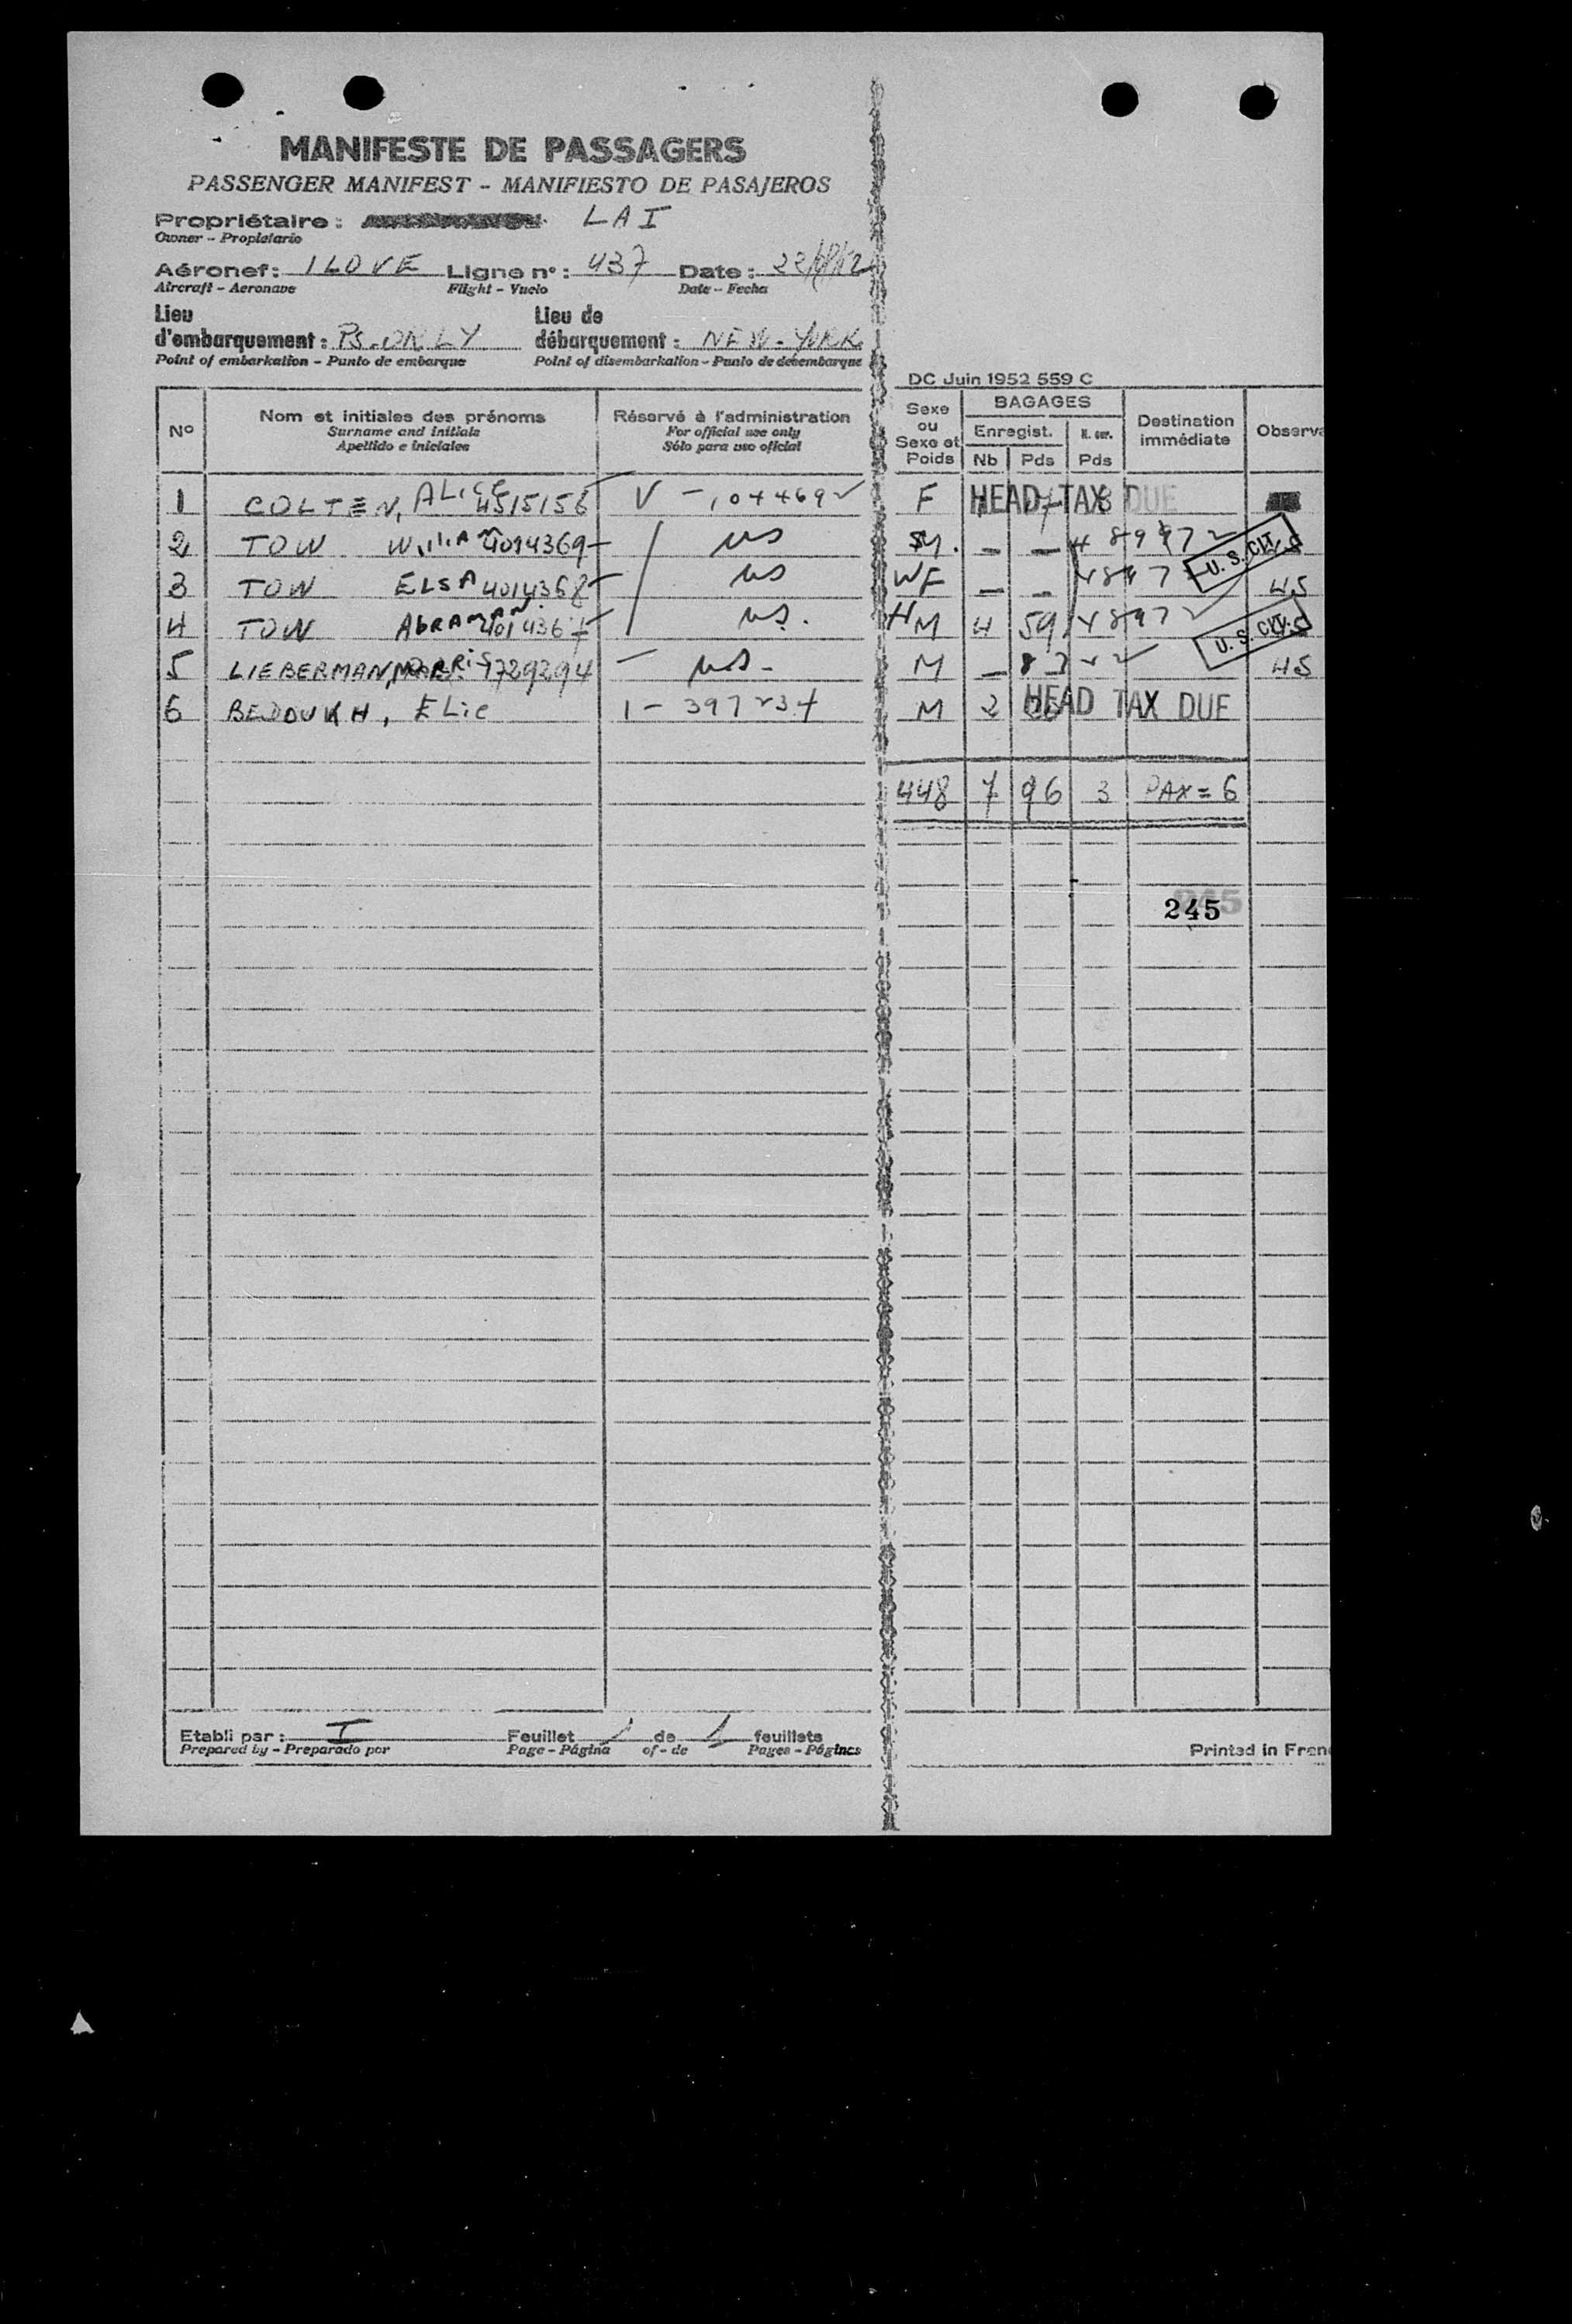 MANIFESTE DE PASSAGERS
PASSENGER MANIFEST - MANIFIESTO DE PASAJEROS
Propriétaire : LAI
Owner - Propietario
Aéronef : I LOVE Ligne n° : 437 Date :
Aircraft - Aeronave Flight - Vuelo Date - Fecha
Lieu d'embarquement : PS. ORLY Lieu de débarquement : NEW-YORK
Point of embarkation - Punto de embarque Point of disembarkation - Punto de desembarque
DC Juin 1952 559 C
N° Nom et initiales des prénoms Réservé à l'administration Sexe ou Sexe et Poids BAGAGES Destination immédiate Observa
Surname and initials For official use only Enregist.
Apellido e iniciales Sólo para uso oficial Nb Pds Pds
1 COLTEN, ALICE 4515156 V - F HEAD TAX DUE
2 TOW WILLIAM 4014369 US M. - - U.S. CIT.
3 TOW ELSA 4014368 US WF - - US
4 TOW ABRAHAM 4014367 US. HM 4 59 U.S. CIT.
5 LIEBERMAN, MORRIS US - M - US
6 BEDOUKH, ELie M 2 HEAD TAX DUE
448 7 96 3 PAX = 6
245
Etabli par : I Feuillet 1 de 1 feuillets
Prepared by - Preparado por Page - Página of - de Pages - Páginas
Printed in Fran